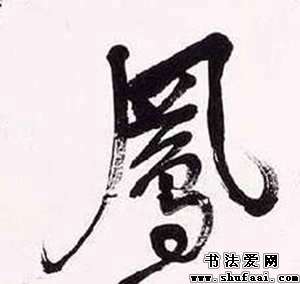 鳳
书法爱网
www.shufaai.com